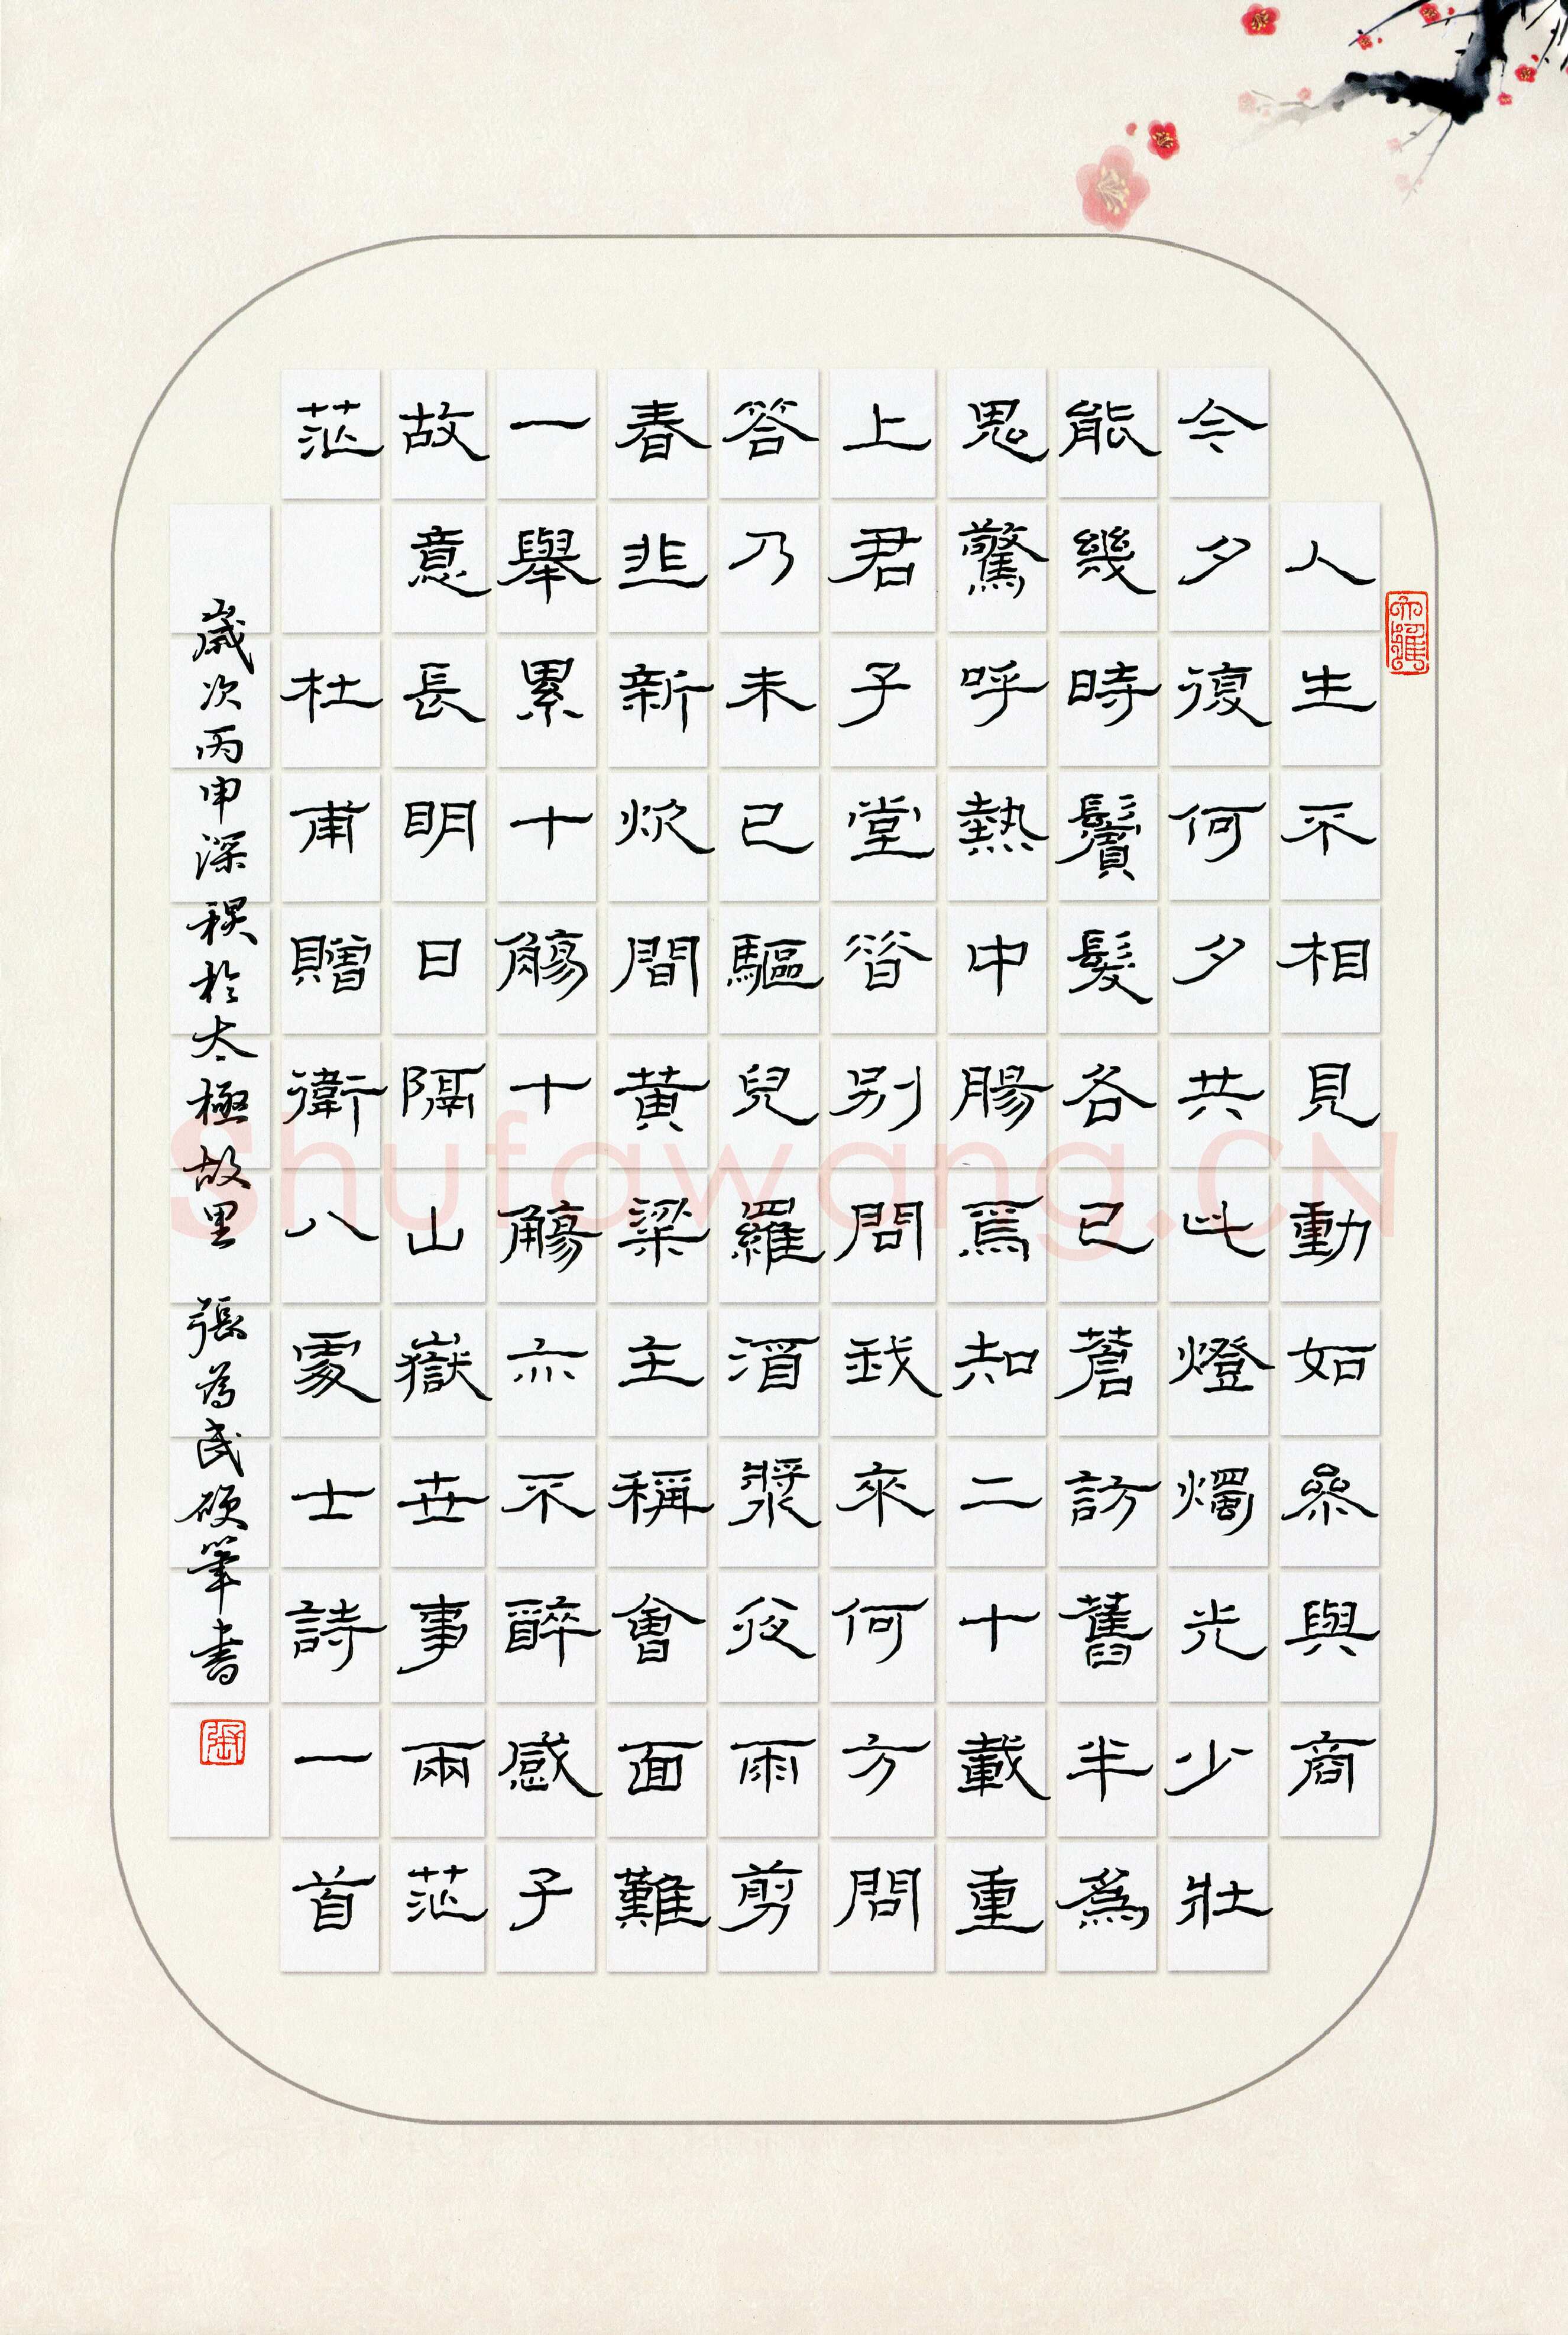 人生不相見動如參與商
今夕復何夕共此燈燭光少壯
能幾時鬢髮各已蒼訪舊半為
鬼驚呼熱中腸焉知二十載重
上君子堂昔別問我來何方問
答乃未已驅兒羅酒漿夜雨剪
春韭新炊間黃粱主稱會面難
一舉累十觴十觴亦不醉感子
故意長明日隔山嶽世事兩茫
茫 杜甫贈衛八處士詩一首
歲次丙申深秋於太極故里 張為民硬筆書
Shufawang.CN